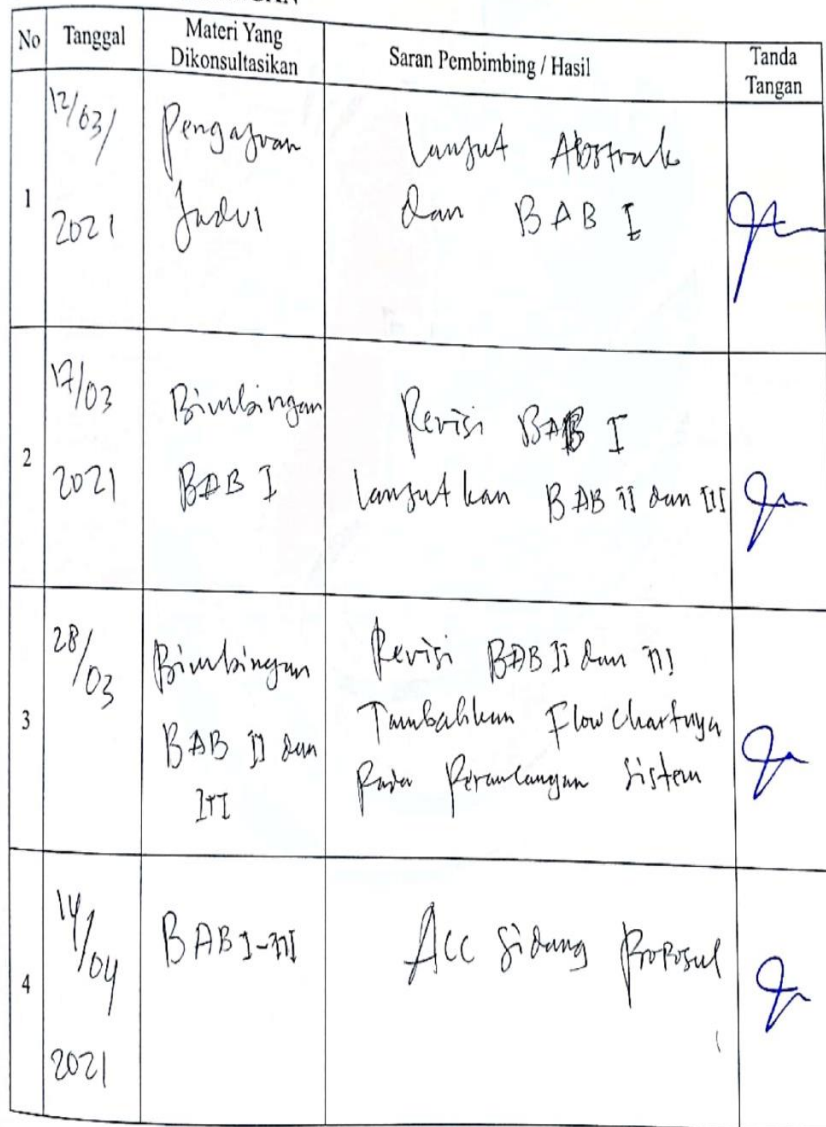 No Tanggal Materi Yang Dikonsultasikan Saran Pembimbing / Hasil Tanda Tangan
1
12/03/
2021
Pengajuan
Judul
Lanjut Abstrak
dan BAB I
2
17/03
2021
Bimbingan
BAB I
Revisi BAB I
Lanjutkan BAB II dan III
3
28/03
Bimbingan
BAB II dan
III
Revisi BAB II dan III
Tambahkan Flowchartnya
Pada Perancangan Sistem
4
14/04
2021
BAB I-III
Acc Sidang Proposal